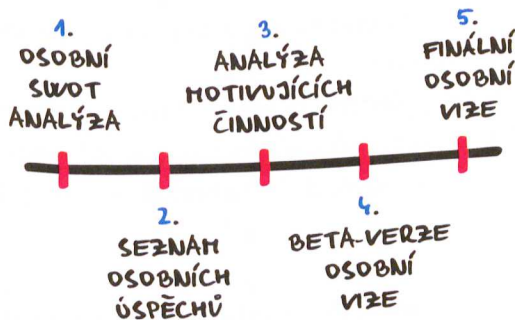 1.
OSOBNÍ
SWOT
ANALÝZA
2.
SEZNAM
OSOBNÍCH
ÚSPĚCHŮ
3.
ANALÝZA
MOTIVUJÍCÍCH
ČINNOSTÍ
4.
BETA-VERZE
OSOBNÍ
VIZE
5.
FINÁLNÍ
OSOBNÍ
VIZE